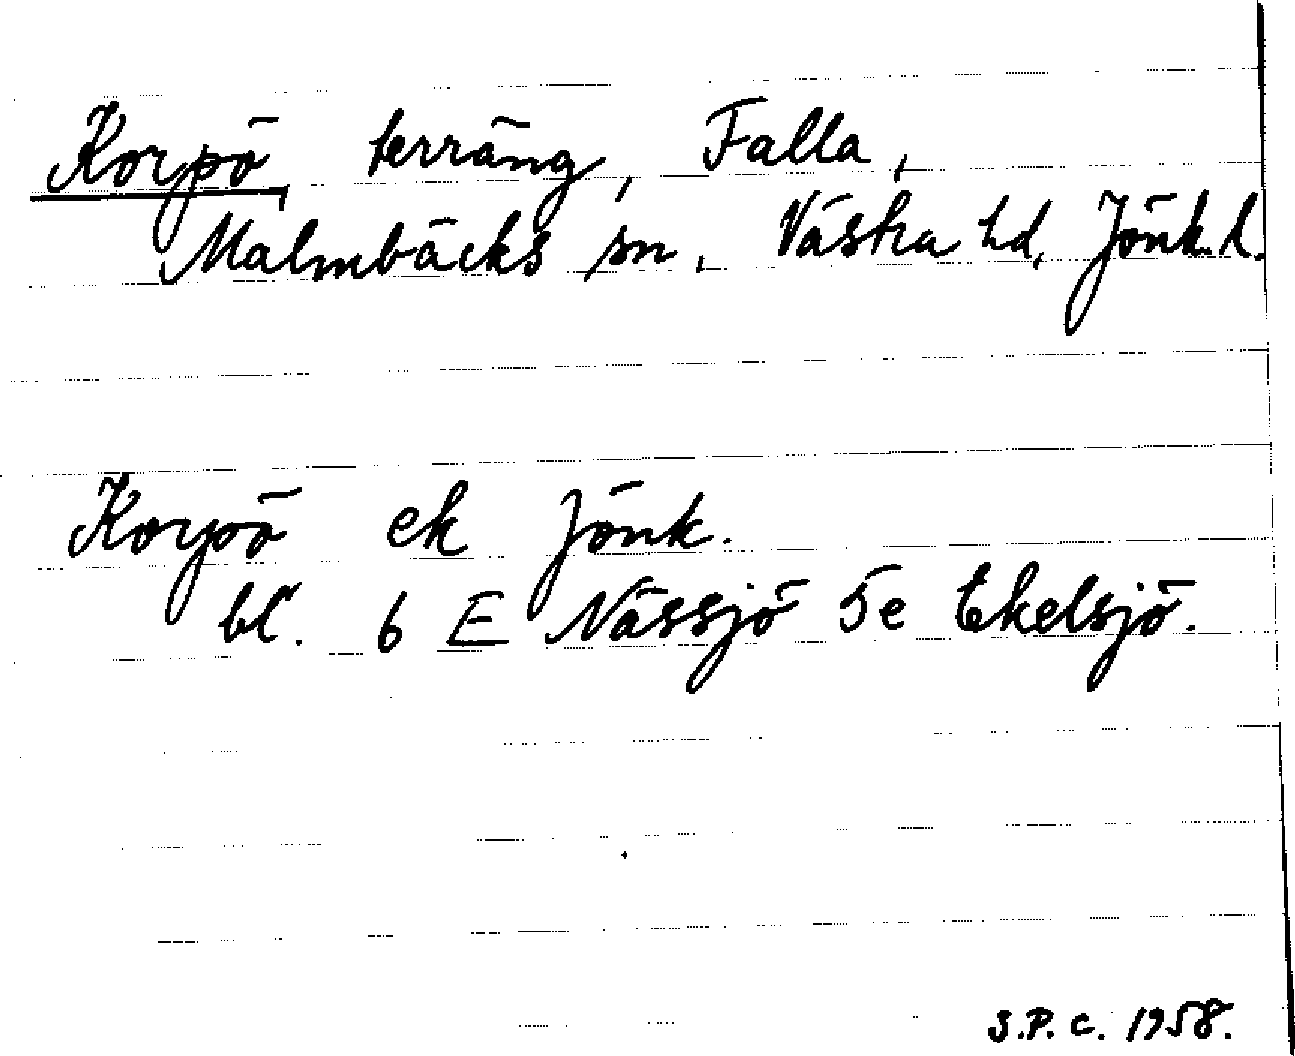 Korpö, terräng, Falla,
Malmbäcks sn, Västra hd, Jönk. l.
Korpö ek Jönk.
bl. 6 E Nässjö 5e Ekelsjö.
S.P.C. 1958.